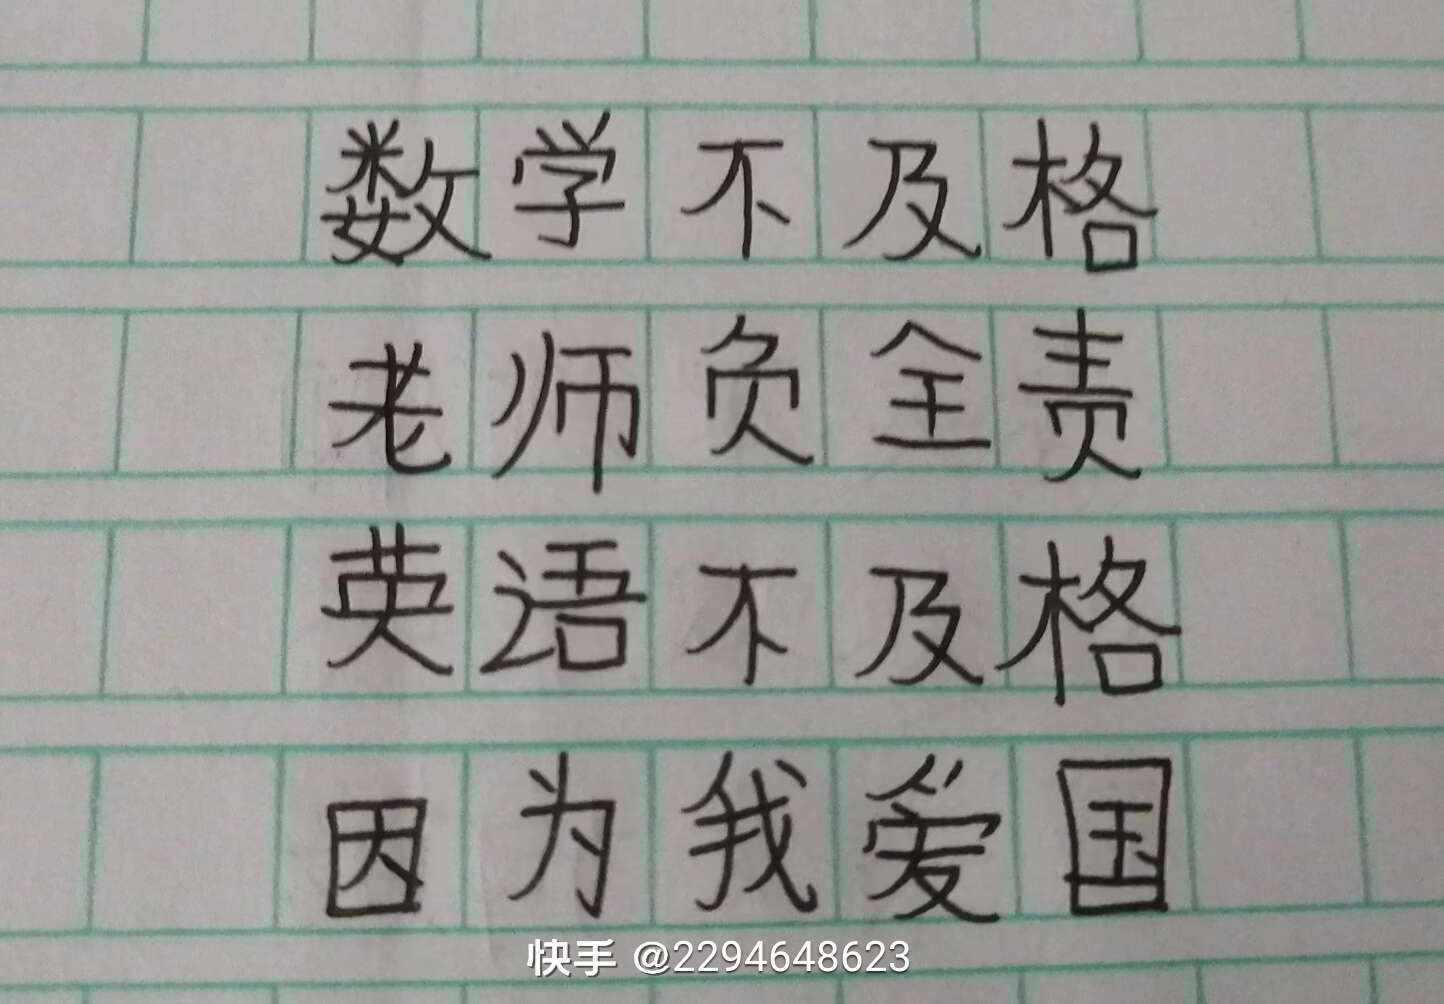 数学不及格
老师负全责
英语不及格
因为我爱国
快手 @2294648623